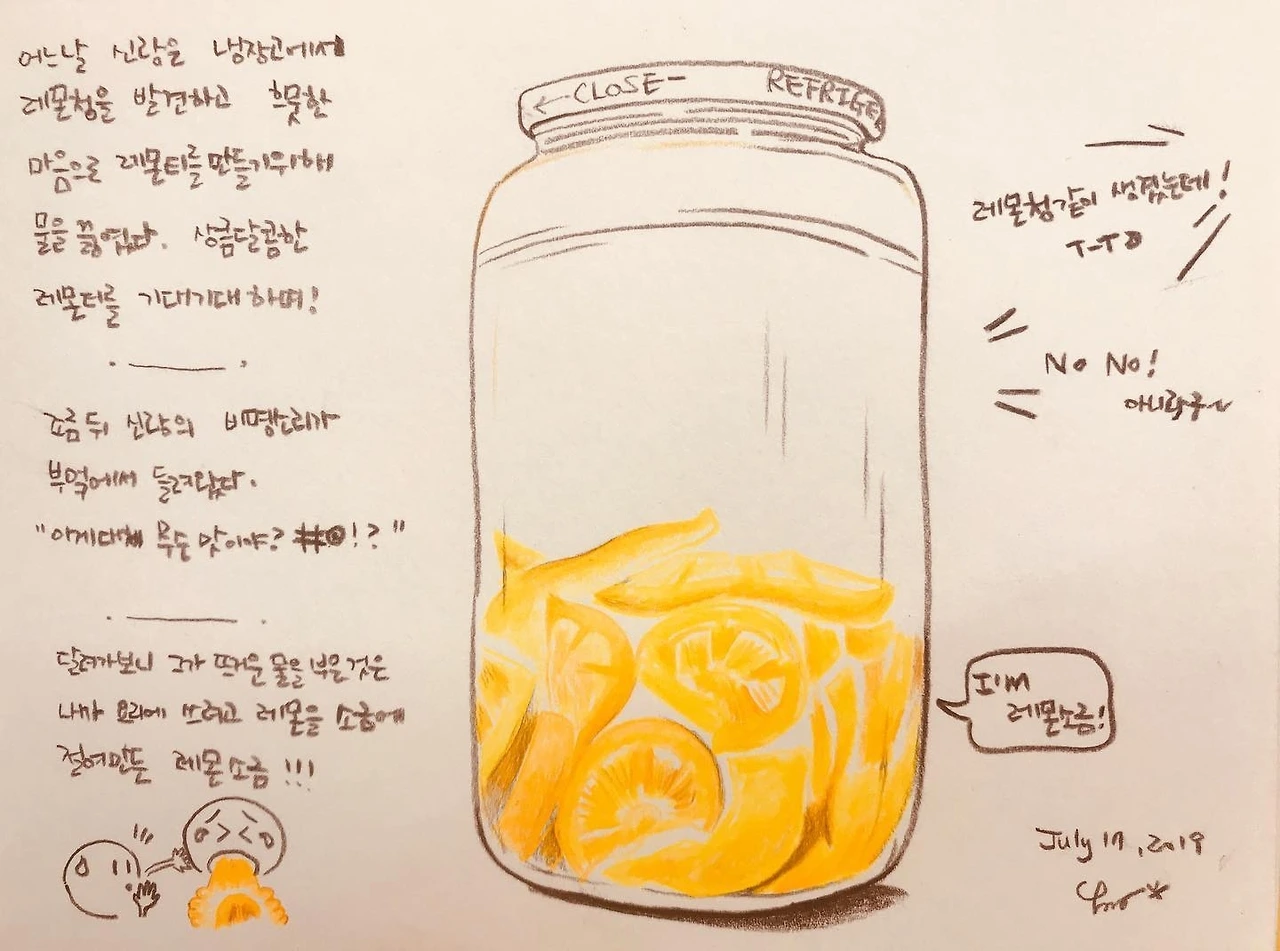 어느날 신랑은 냉장고에서
레몬청을 발견하고 흐뭇한
마음으로 레몬티를 만들기위해
물을 끓였다. 상큼달콤한
레몬티를 기대기대하며!
조금뒤 신랑의 비명소리가
부엌에서 들려왔다.
"이게대체 무슨 맛이야? #@!?"
달려가보니 그가 뜨거운 물을 부은것은
내가 요리에 쓰려고 레몬을 소금에
절여만든 레몬소금!!!
←CLOSE-
REFRIGE
레몬청같이 생겼는데!
T-T
No No!
아니라구~
I'M
레몬소금!
July 17, 2019